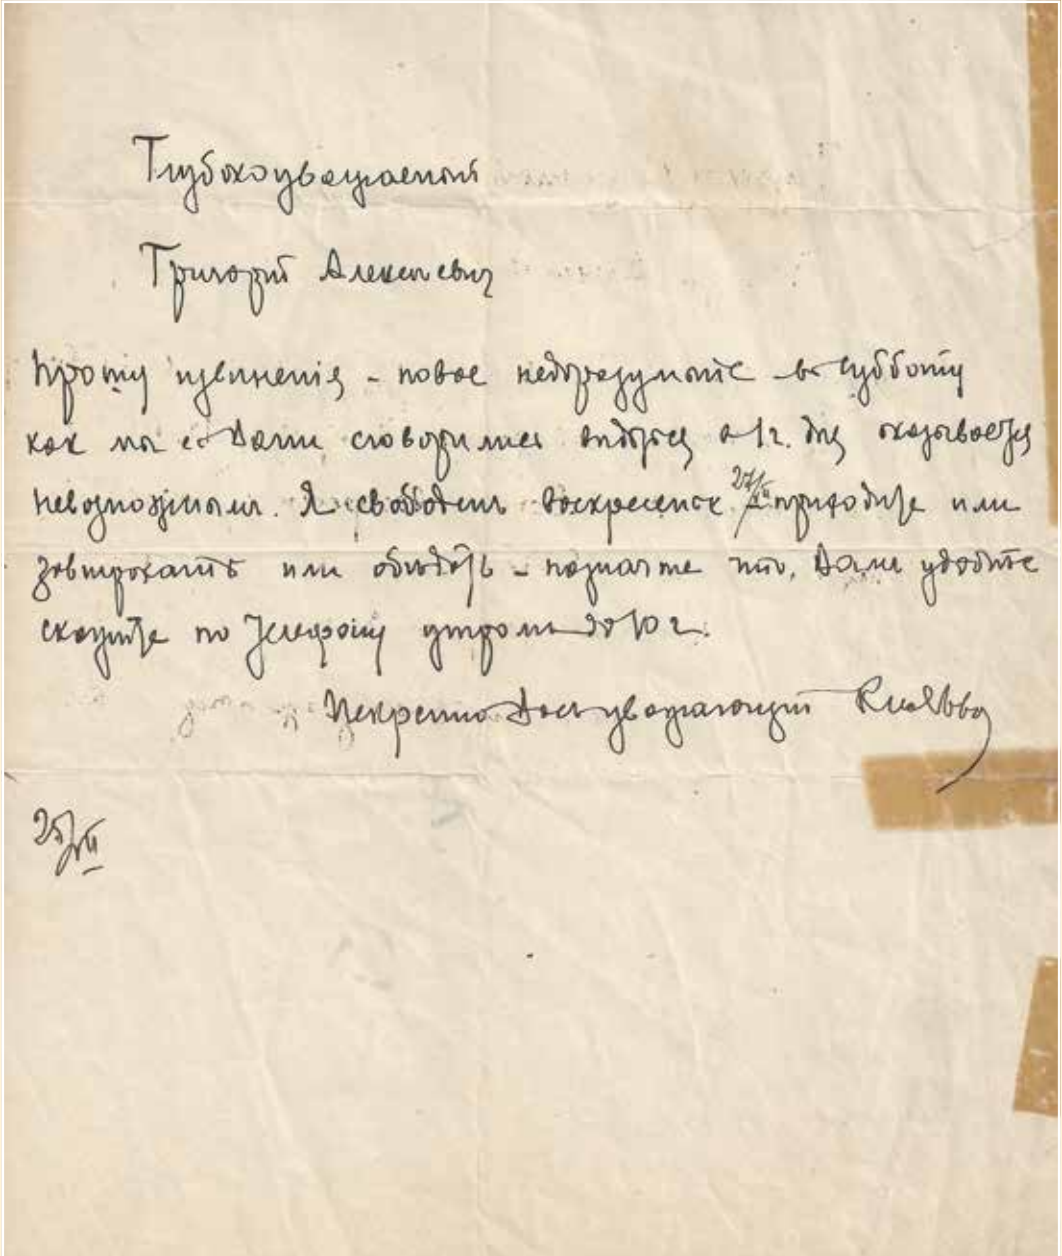 Глубокоуважаемый
Григорий Алексеевич
Прошу извиненiя - новое недоразуменiе - в субботу
как мы с Вами сговорились видеться в 1 ч. дня оказывается
невозможным. Я свободен воскресенье 27/XII приходите или
завтракать или обедать - назначте что Вам удобнее
скажите по телефону утром до 10 ч.
Искренно Вас уважающий
25/XII